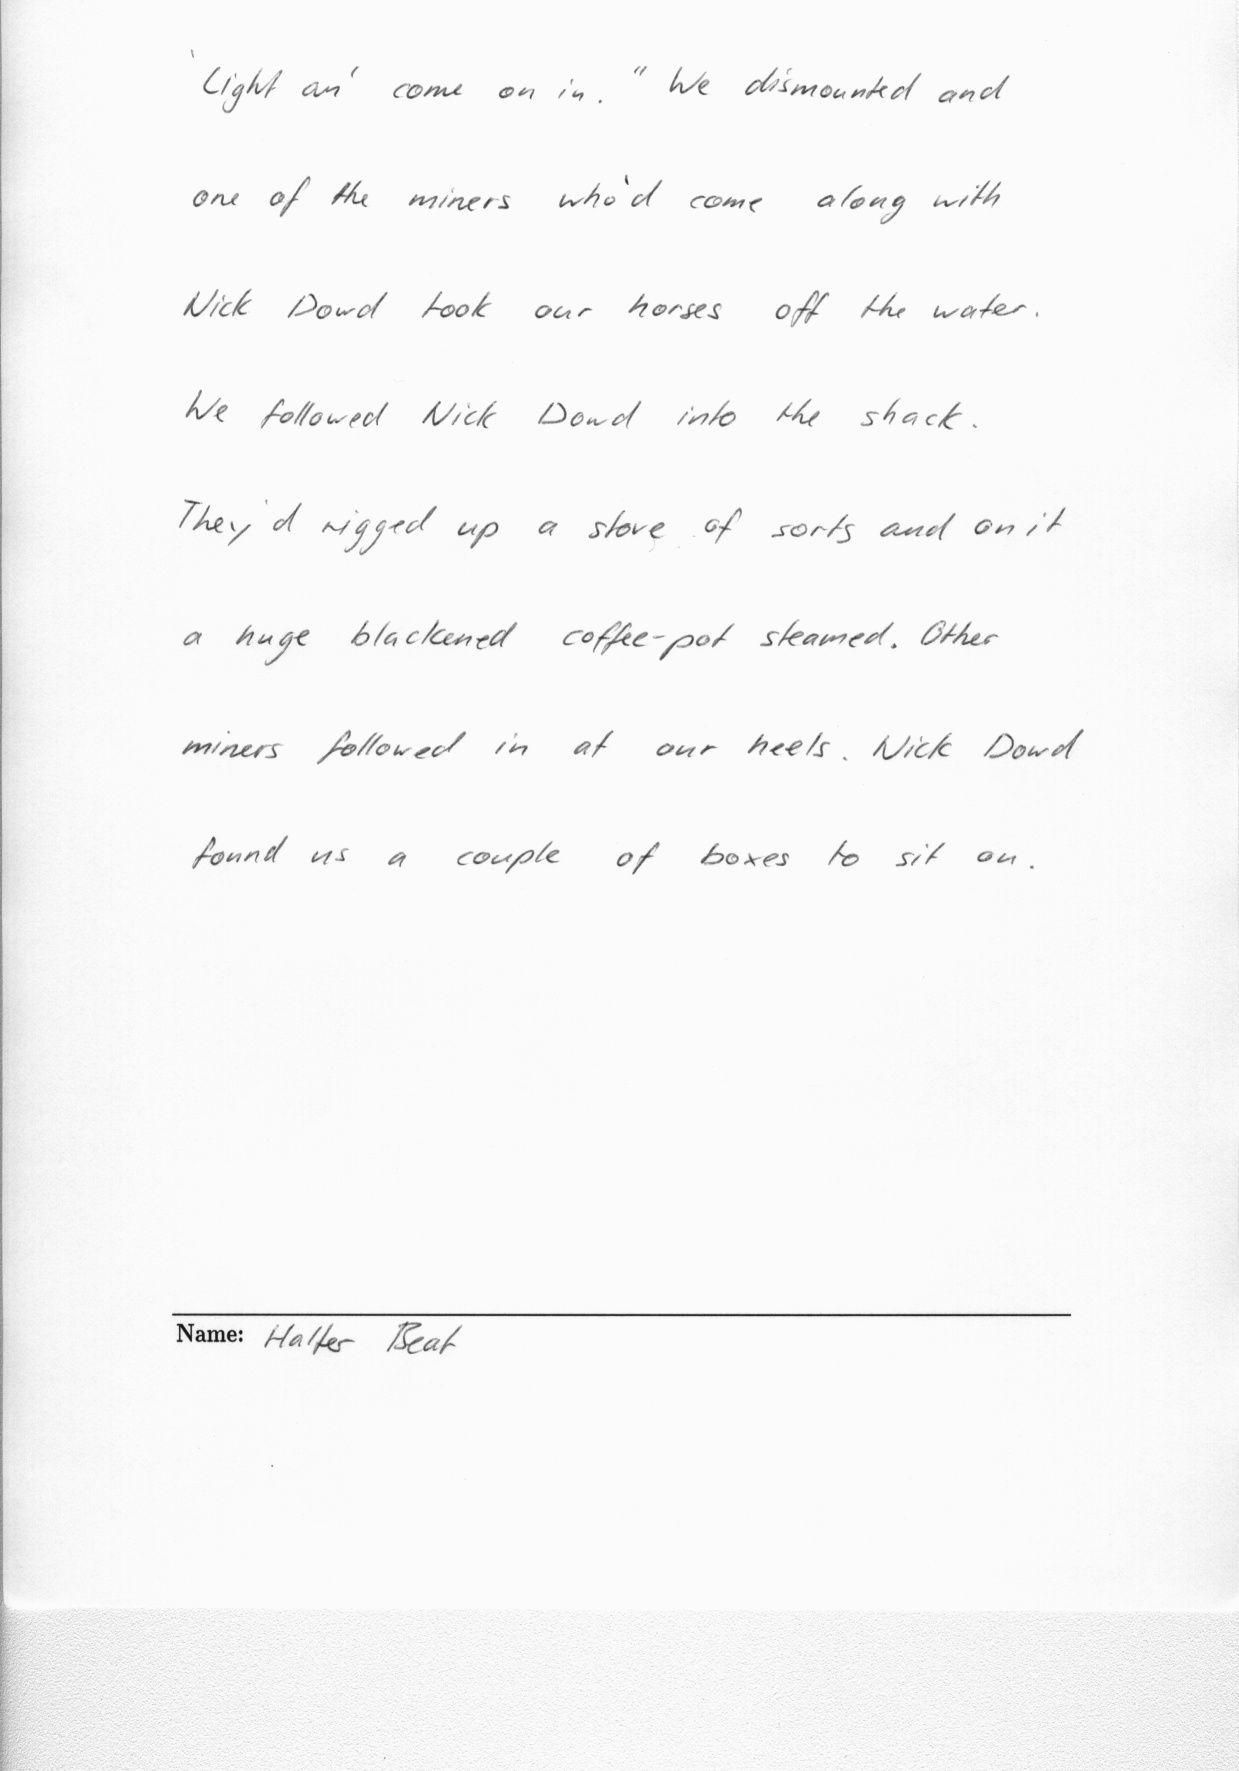 'Light an' come on in." We dismounted and
one of the miners who'd come along with
Nick Dowd took our horses off the water.
We followed Nick Dowd into the shack.
They'd rigged up a stove of sorts and on it
a huge blackened coffee-pot steamed. Other
miners followed in at our heels. Nick Dowd
found us a couple of boxes to sit on.
Name: Halter Beat